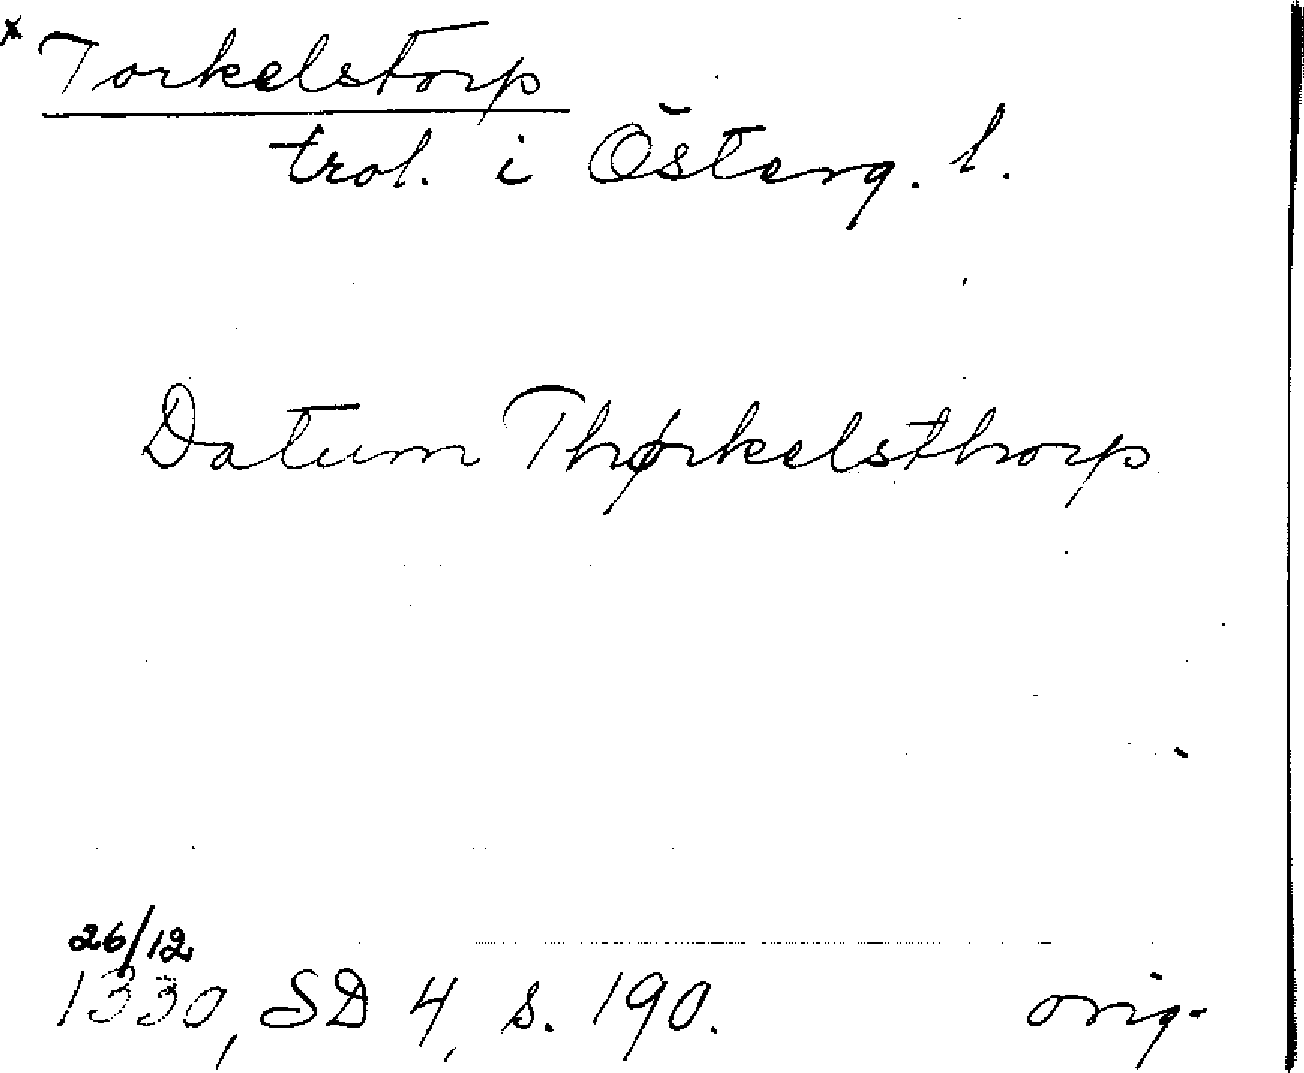 x Torkelstorp
trol. i Österg. l.
Datum Thørkelsthorp
26/12
1330, SD 4, s. 190. orig.